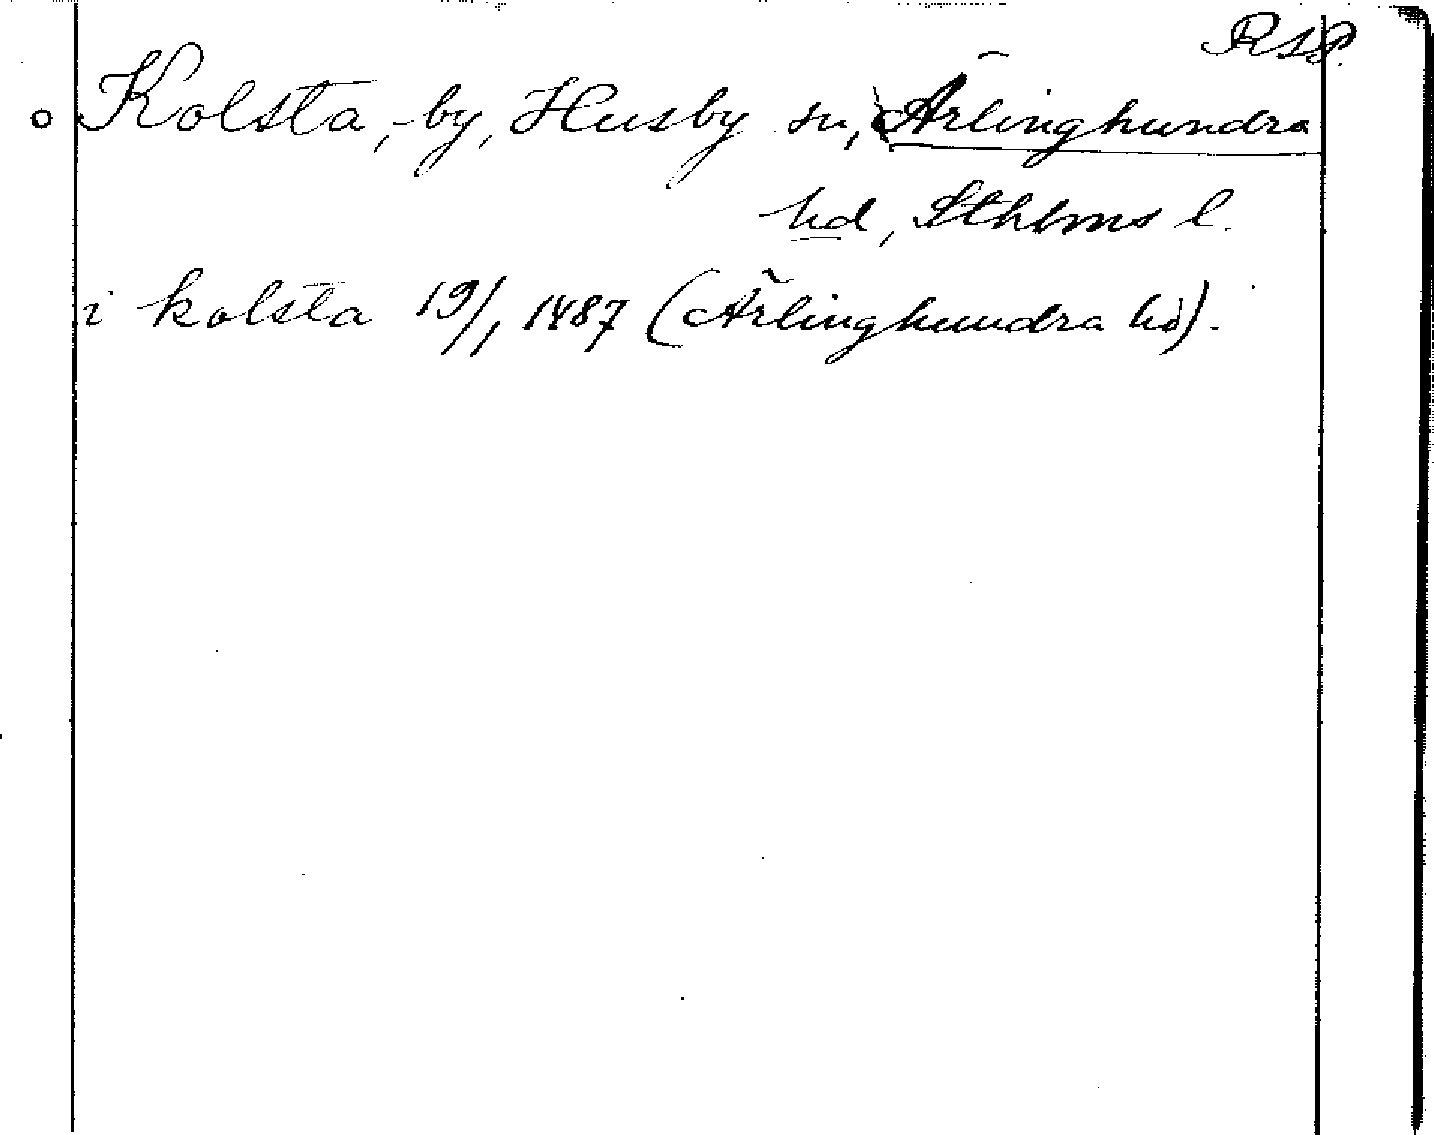 RAP.
Kolsta, by, Husby sn, Ärlinghundra
hd, Sthlms l.
i kolsta 19/1 1487 (Ärlinghundra hd).